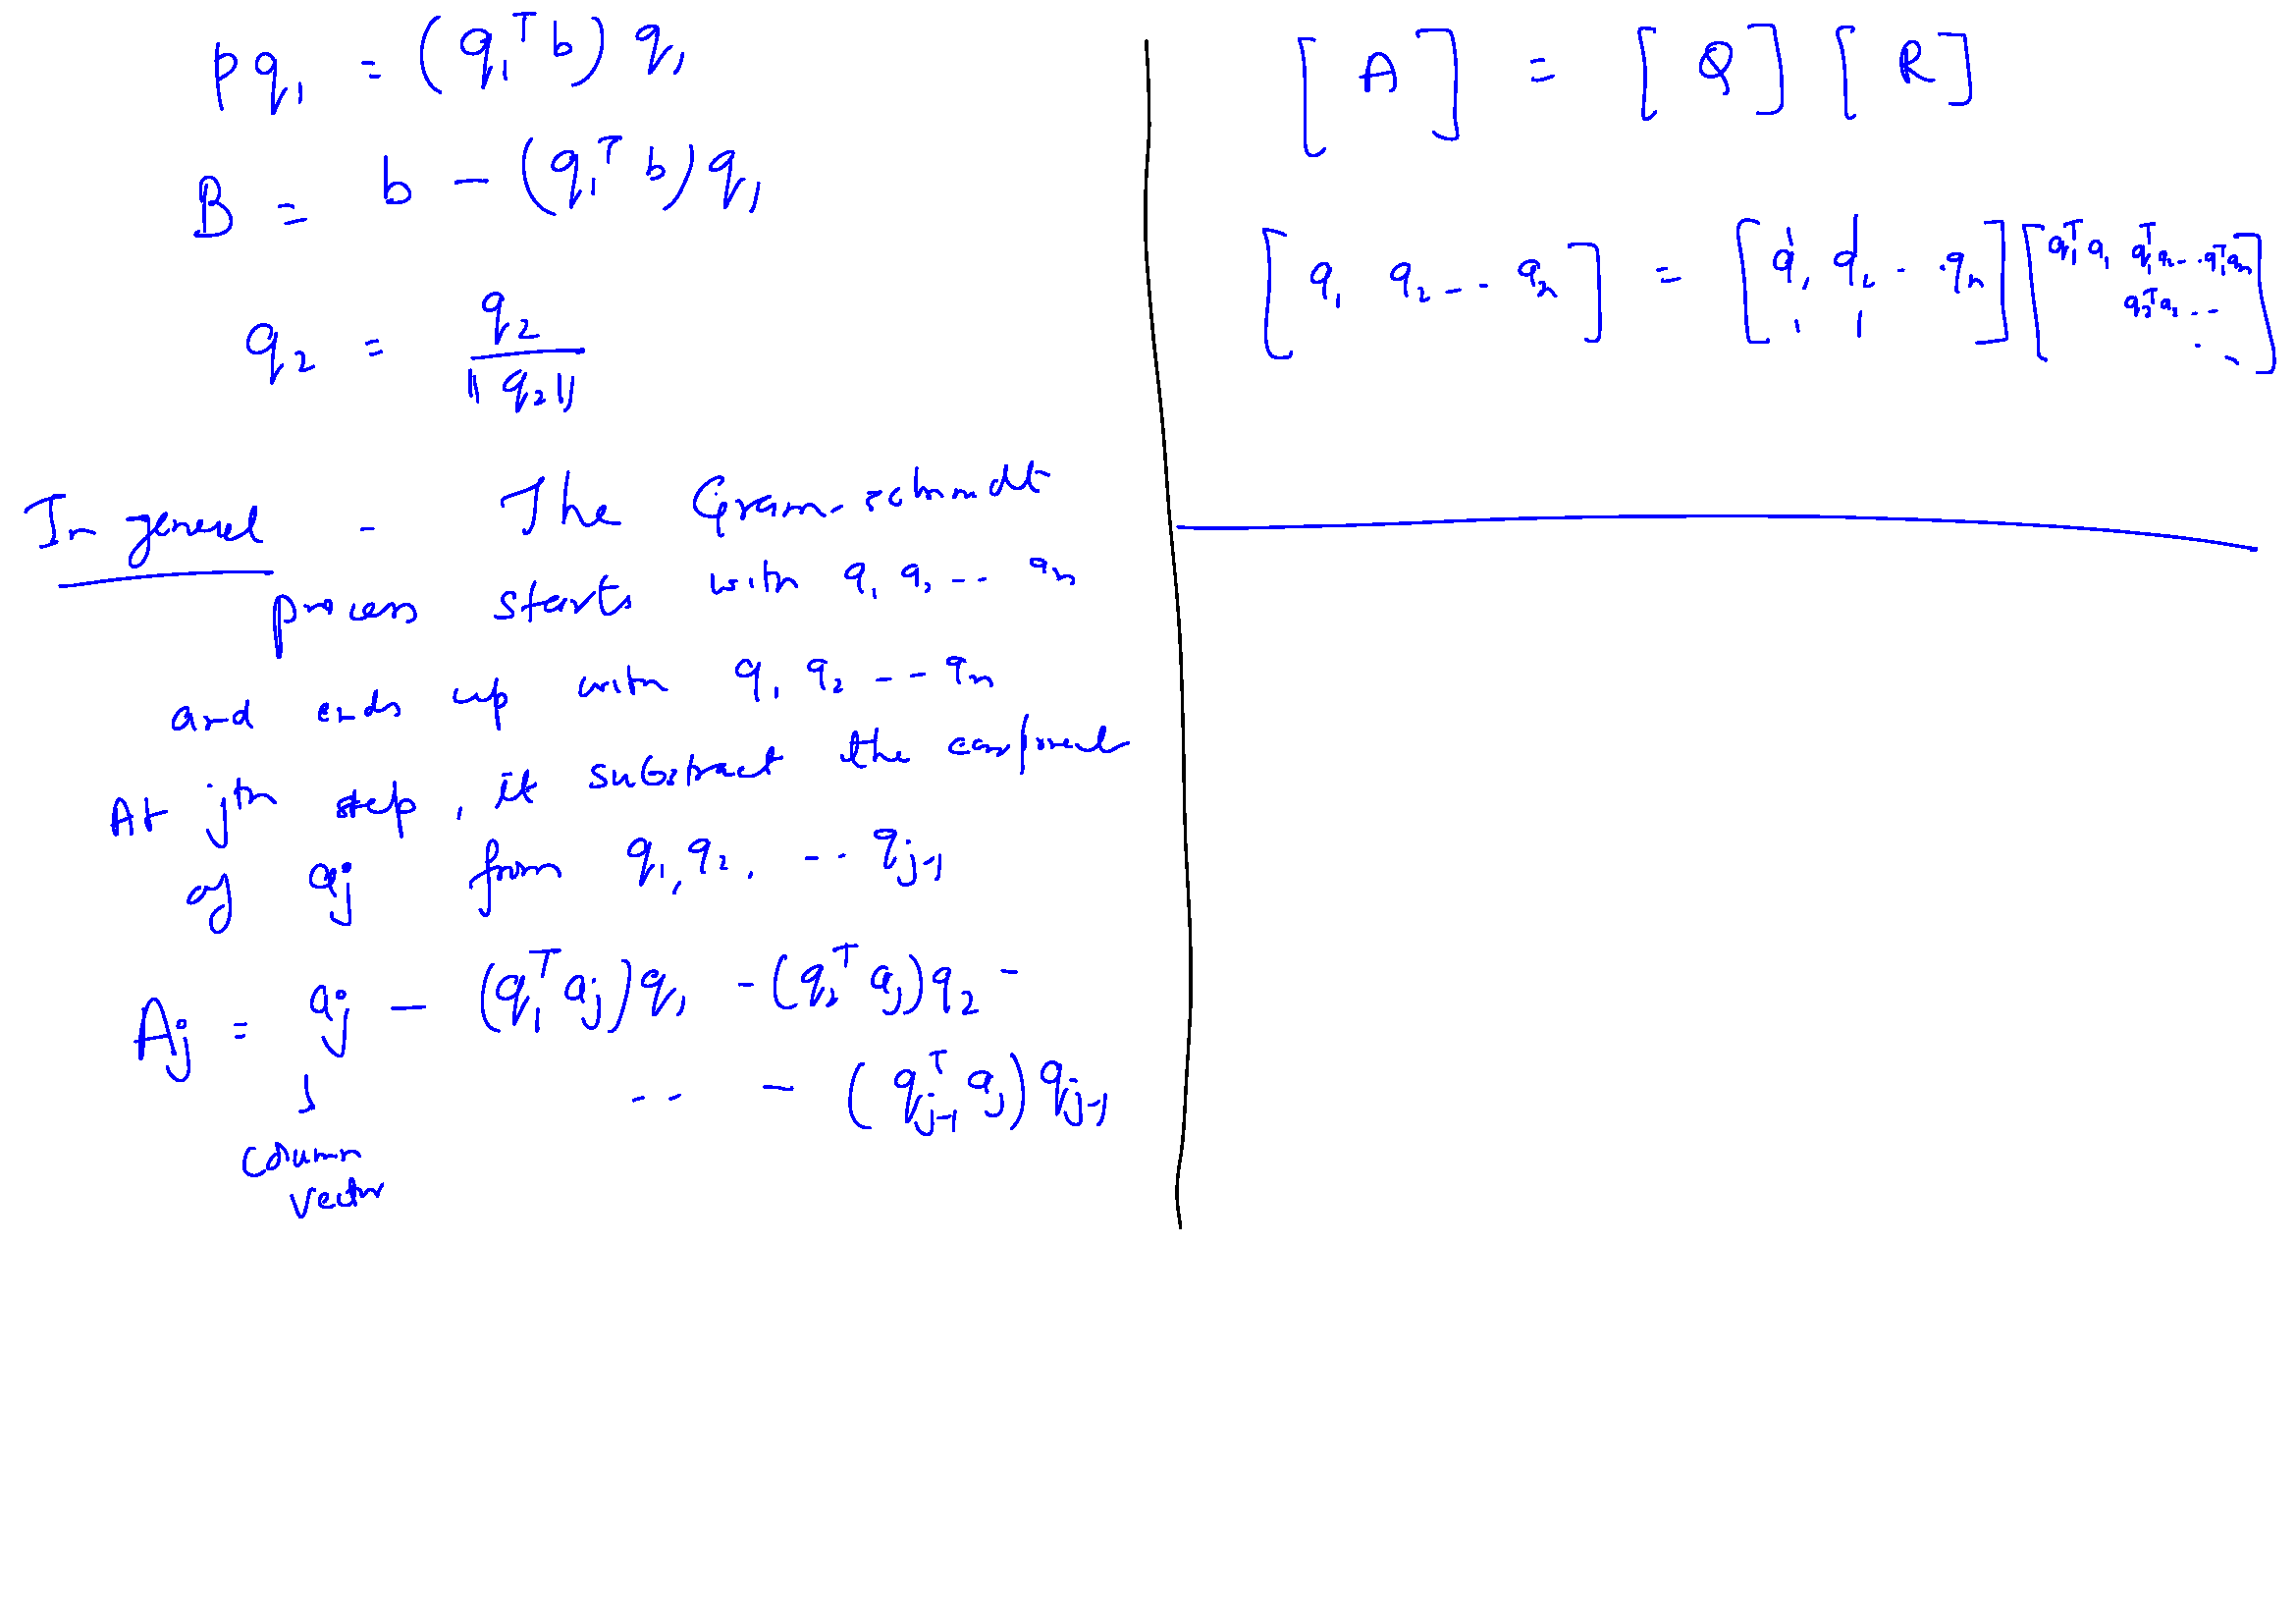 p q₁ = (q₁ᵀ b) q₁
B = b - (q₁ᵀ b) q₁
q₂ = q₂ / ||q₂||
In general - The Gram-schmdt
process starts with a₁ a₂ -- aₙ
and ends up with q₁ q₂ -- qₙ
At jth step, it substract the
of aj from q₁, q₂, -- qj-1
Aj = aj - (q₁ᵀ aj) q₁ - (q₂ᵀ aj) q₂ -
-- - (qj-1ᵀ aj) qj-1
column
vector
[A] = [Q] [R]
[a₁ a₂ -- aₙ] = [q₁ q₂ - - qₙ] [q₁ᵀa₁ q₁ᵀa₂ -- q₁ᵀaₙ
q₂ᵀa₂ --
]